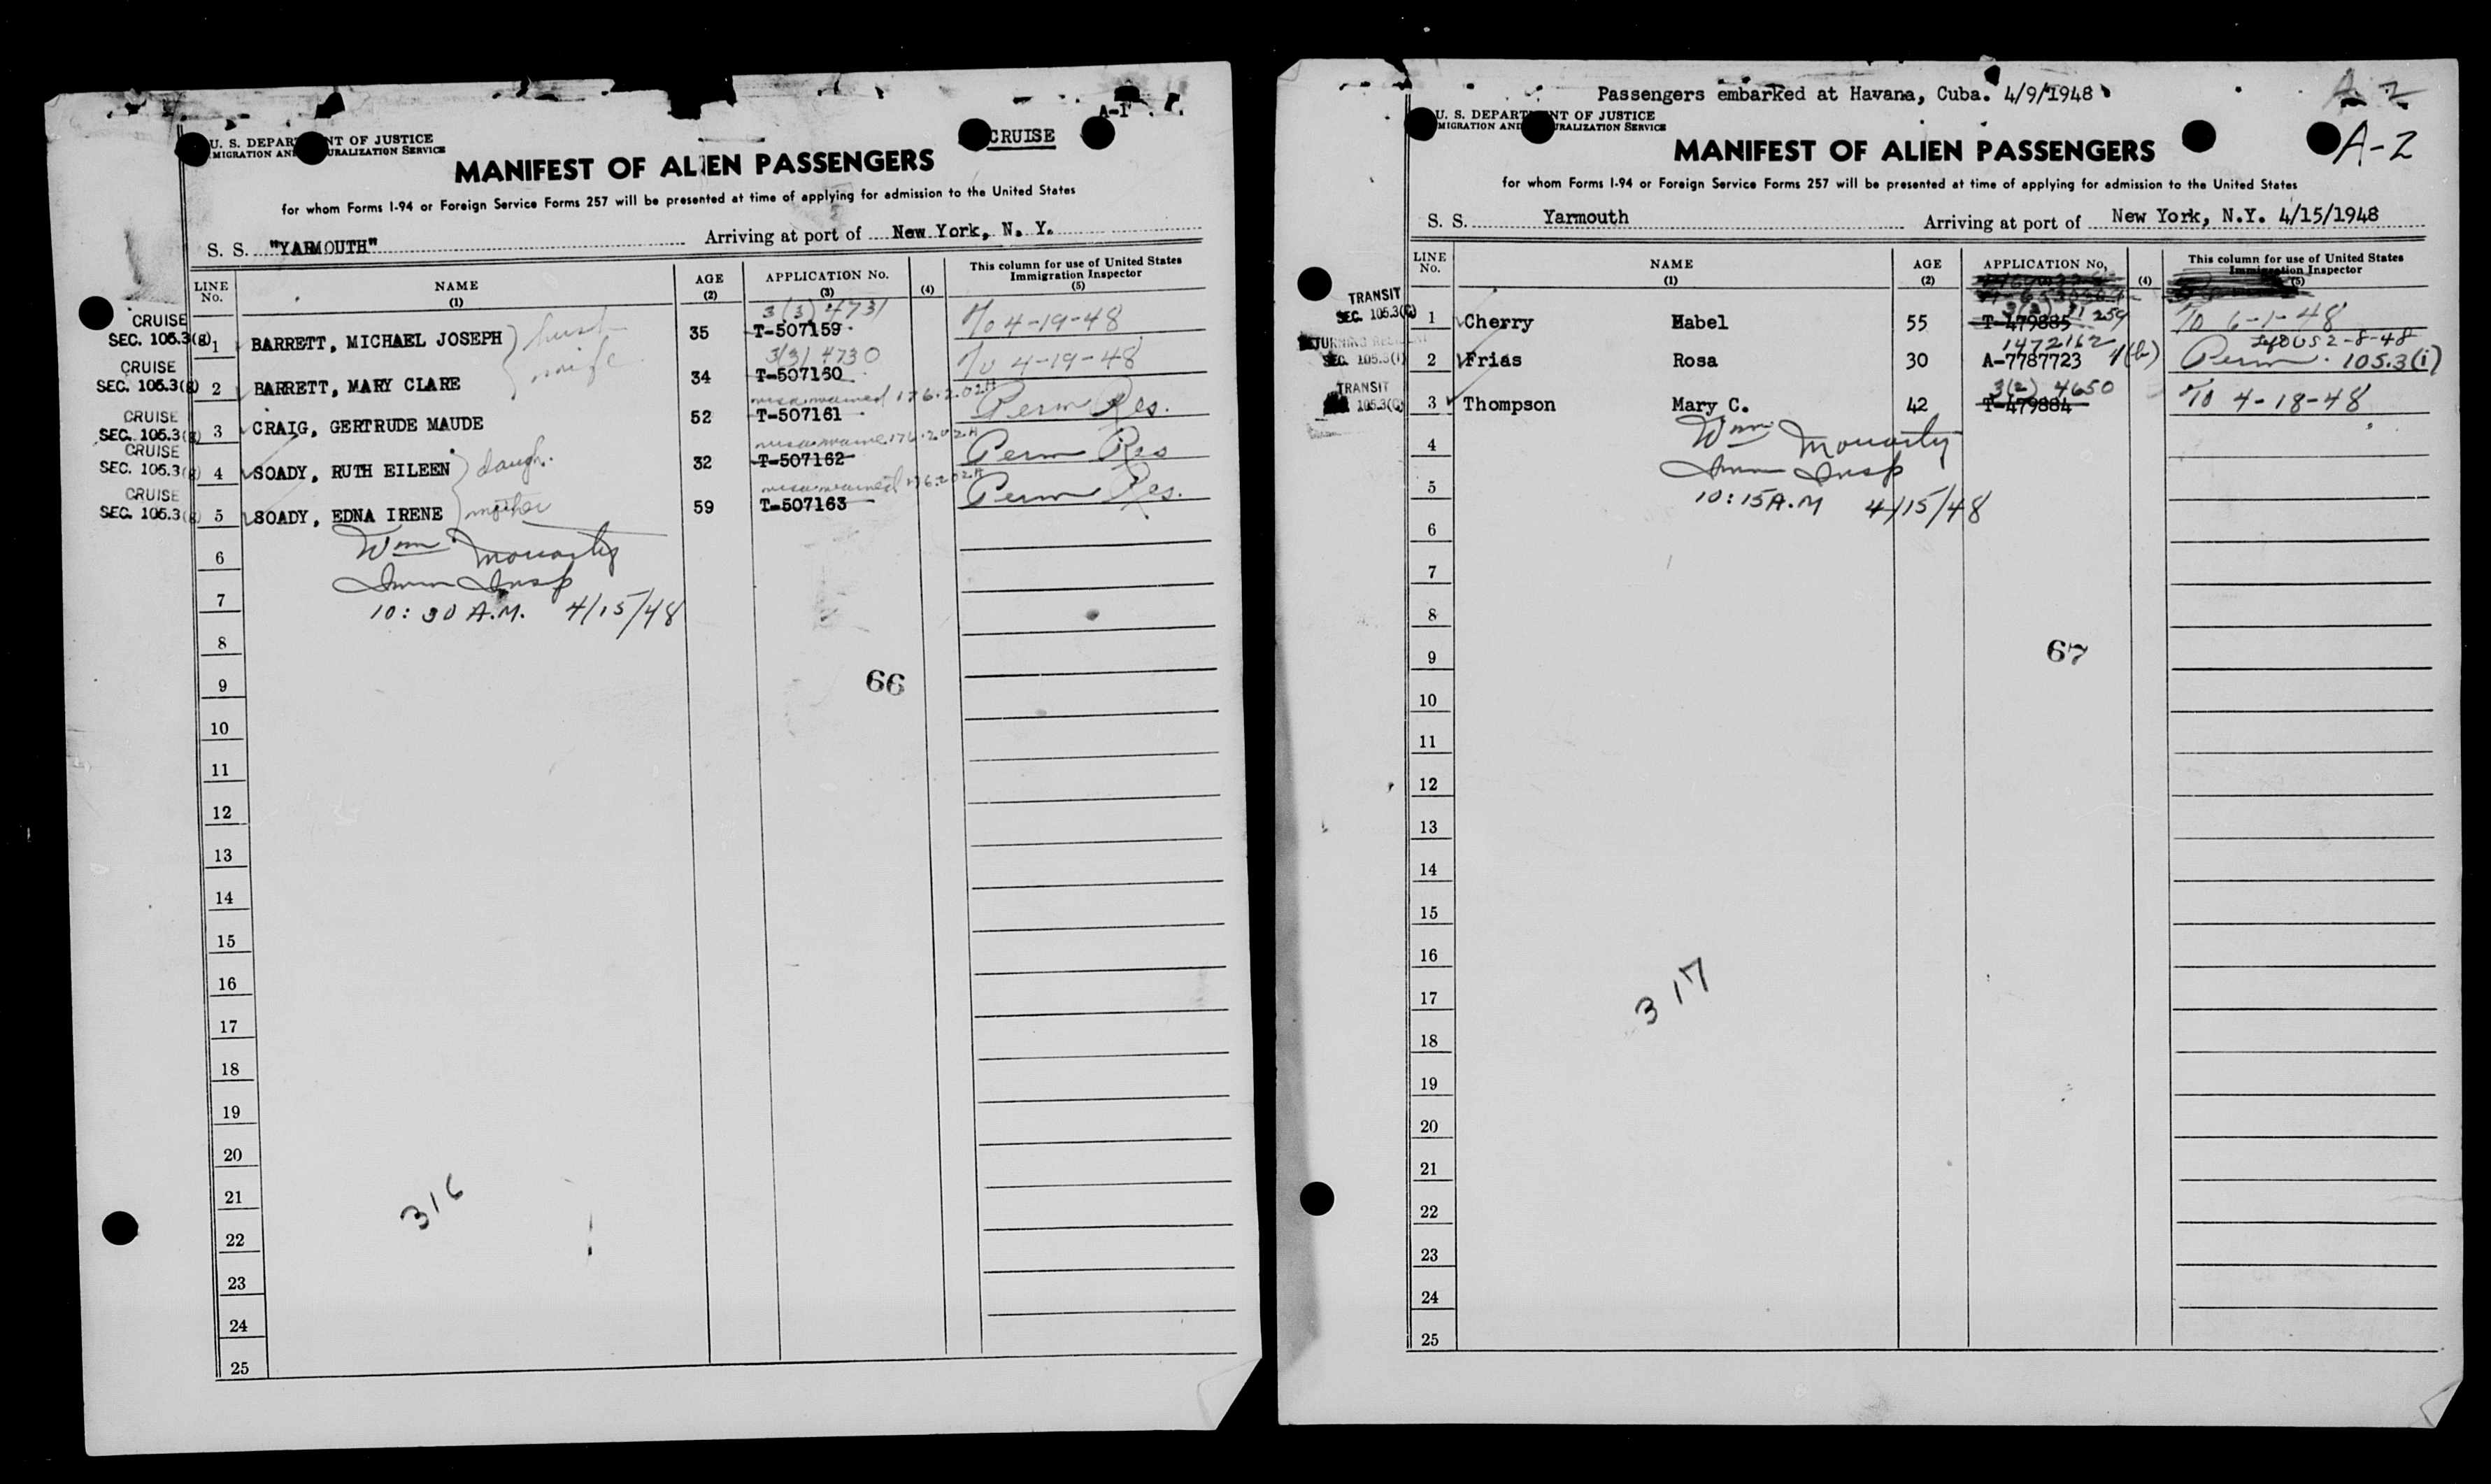 A-1
CRUISE
U. S. DEPAR NT OF JUSTICE
MIGRATION AN URALIZATION SERVICE
MANIFEST OF ALIEN PASSENGERS
for whom Forms I-94 or Foreign Service Forms 257 will be presented at time of applying for admission to the United States
S. S. "YARMOUTH" Arriving at port of New York, N. Y.
LINE No. NAME (1) AGE (2) APPLICATION No. (3) (4) This column for use of United States Immigration Inspector (5)
3(3) 4731
CRUISE SEC. 105.3(g) 1 BARRETT, MICHAEL JOSEPH husb 35 T-507159 T/o 4-19-48
3(3) 4730
CRUISE SEC. 105.3(g) 2 BARRETT, MARY CLARE wife 34 T-507160 T/o 4-19-48
visa waived 176.202A
CRUISE SEC. 105.3(g) 3 CRAIG, GERTRUDE MAUDE 52 T-507161 Perm Res.
visa waived 176.202A
CRUISE SEC. 105.3(g) 4 SOADY, RUTH EILEEN daugh. 32 T-507162 Perm Res
visa waived 176.202A
CRUISE SEC. 105.3(g) 5 SOADY, EDNA IRENE mother 59 T-507163 Perm Res.
6 Wm. Moriarty
Imm Insp
7 10:30 A.M. 4/15/48
8
9 66
10
11
12
13
14
15
16
17
18
19
20
21 316
22
23
24
25
Passengers embarked at Havana, Cuba. 4/9/1948
A-2
A-2
U. S. DEPART NT OF JUSTICE
MIGRATION AND URALIZATION SERVICE
MANIFEST OF ALIEN PASSENGERS
for whom Forms I-94 or Foreign Service Forms 257 will be presented at time of applying for admission to the United States
S. S. Yarmouth Arriving at port of New York, N.Y. 4/15/1948
LINE No. NAME (1) AGE (2) APPLICATION No. (4) This column for use of United States Immigration Inspector (5)
3(2) 259
TRANSIT SEC. 105.3(C) 1 Cherry Mabel 55 T-479885 T/o 6-1-48
1472162 2-8-48
SEC. 105.3(i) 2 Frias Rosa 30 A-7787723 4(b) Perm. 105.3(i)
3(2) 4650
TRANSIT 105.3(C) 3 Thompson Mary C. 42 T-479884 T/o 4-18-48
4 Wm. Moriarty
Imm Insp
5 10:15 A.M 4/15/48
6
7
8
9 67
10
11
12
13
14
15
16
17 317
18
19
20
21
22
23
24
25